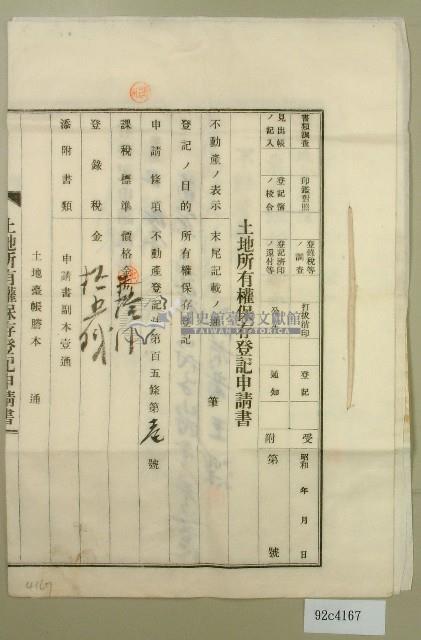 書類調査
印鑑對照
登録税等ノ調査
打拔消印
登記
受附
昭和 年 月 日
見出帳ノ記入
登記簿ノ校合
登記濟印ノ還付等
通知
第 號
土地所有權保存登記申請書
不動產ノ表示 末尾記載ノ通 筆
登記ノ目的 所有權保存登記
申請條項 不動產登記法第百五條第壱號
課稅標準價格金
登錄稅金 拾五錢
添附書類 申請書副本壹通
土地臺帳謄本 通
土地所有權保存登記申請書
國史館臺灣文獻館
4167
92c4167